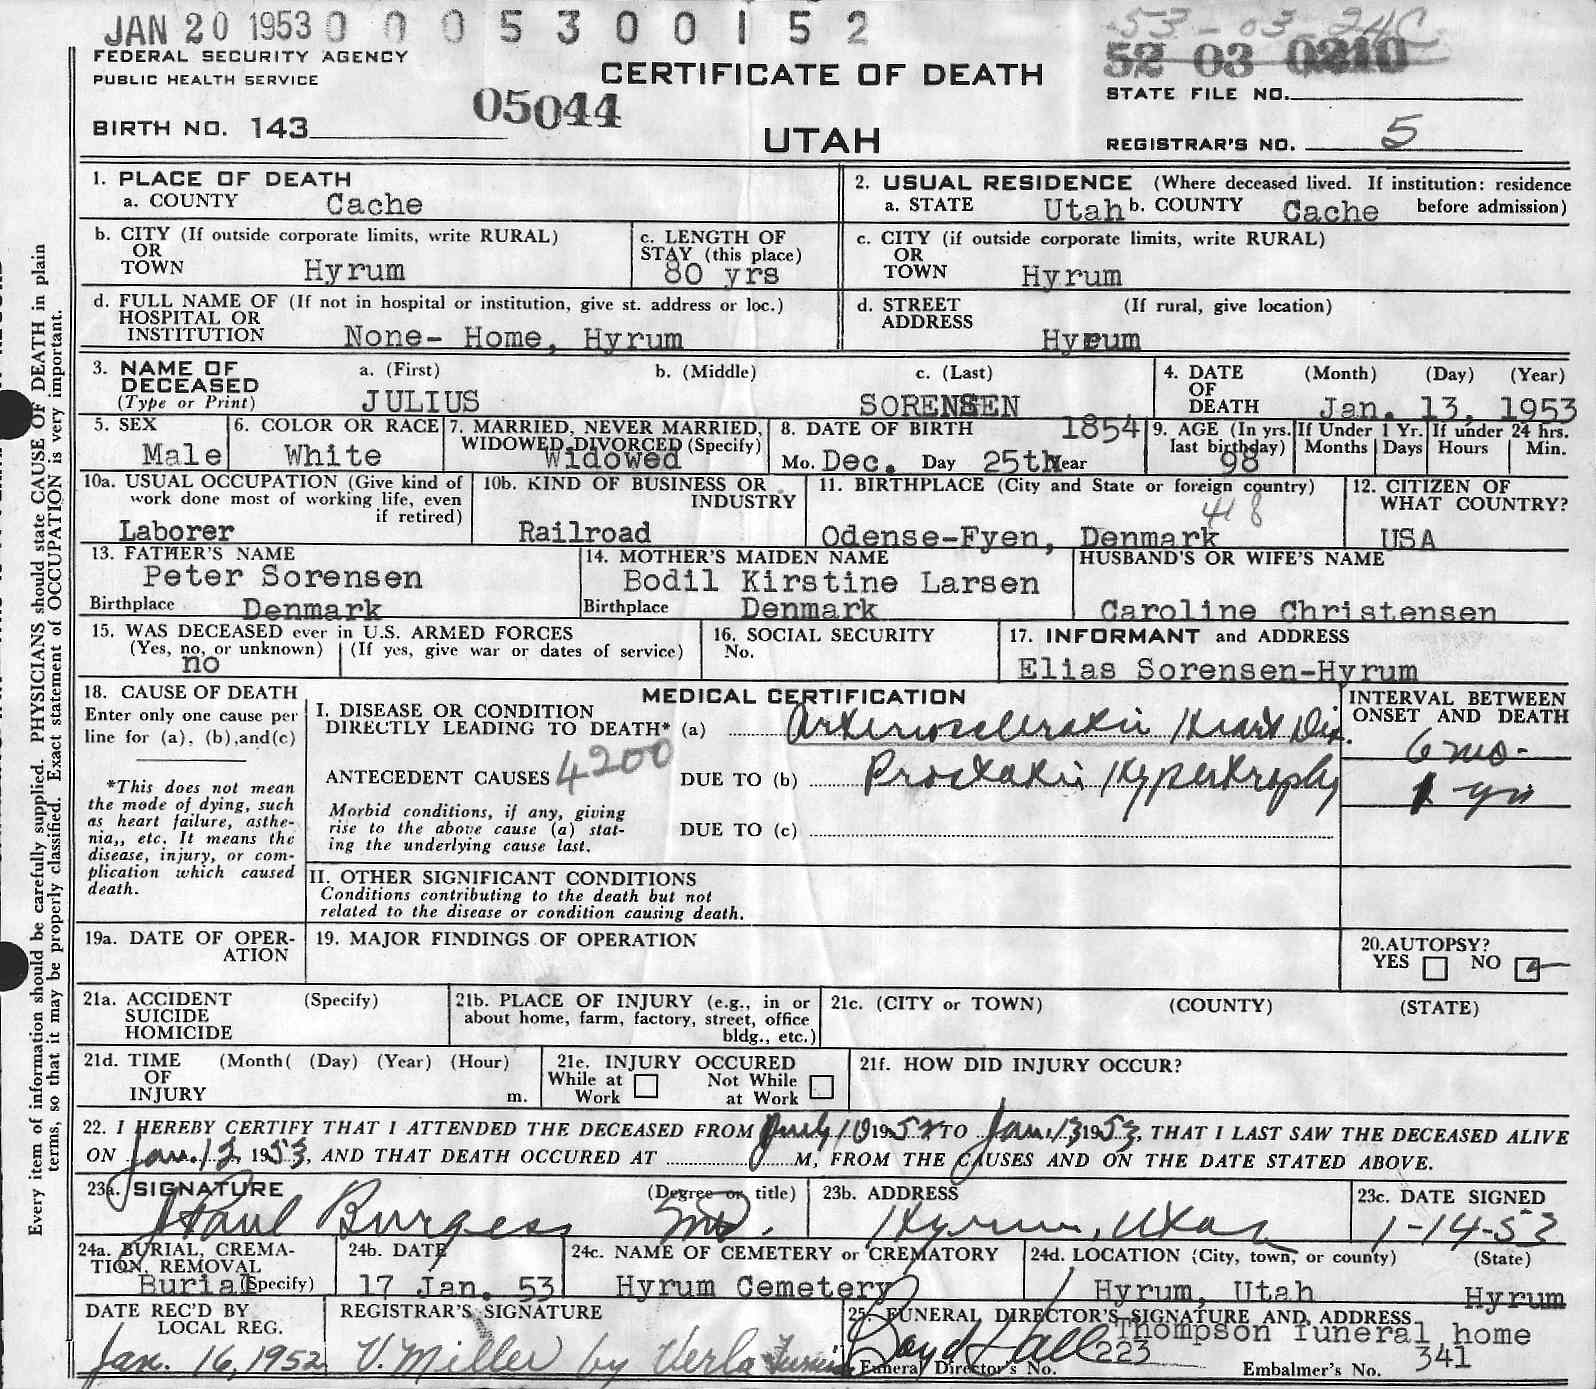 JAN 20 1953 0 0 0 5 3 0 0 1 5 2
53-03 24C
FEDERAL SECURITY AGENCY
PUBLIC HEALTH SERVICE
CERTIFICATE OF DEATH
52 03 0210
STATE FILE NO.
BIRTH NO. 143
05044
UTAH
REGISTRAR'S NO. 5
1. PLACE OF DEATH
a. COUNTY Cache
2. USUAL RESIDENCE (Where deceased lived. If institution: residence before admission)
a. STATE Utah b. COUNTY Cache
b. CITY (If outside corporate limits, write RURAL)
OR
TOWN Hyrum
c. LENGTH OF
STAY (this place)
80 yrs
c. CITY (if outside corporate limits, write RURAL)
OR
TOWN Hyrum
d. FULL NAME OF (If not in hospital or institution, give st. address or loc.)
HOSPITAL OR
INSTITUTION None- Home, Hyrum
d. STREET (If rural, give location)
ADDRESS
Hyrum
3. NAME OF
DECEASED
(Type or Print)
a. (First) b. (Middle) c. (Last)
JULIUS SORENSEN
4. DATE
OF
DEATH
(Month) (Day) (Year)
Jan. 13, 1953
5. SEX
Male
6. COLOR OR RACE
White
7. MARRIED, NEVER MARRIED,
WIDOWED, DIVORCED (Specify)
Widowed
8. DATE OF BIRTH 1854
Mo. Dec. Day 25th Year
9. AGE (In yrs.
last birthday)
98
If Under 1 Yr.
Months Days
If under 24 hrs.
Hours Min.
10a. USUAL OCCUPATION (Give kind of
work done most of working life, even
if retired)
Laborer
10b. KIND OF BUSINESS OR
INDUSTRY
Railroad
11. BIRTHPLACE (City and State or foreign country)
418
Odense-Fyen, Denmark
12. CITIZEN OF
WHAT COUNTRY?
USA
13. FATHER'S NAME
Peter Sorensen
Birthplace Denmark
14. MOTHER'S MAIDEN NAME
Bodil Kirstine Larsen
Birthplace Denmark
HUSBAND'S OR WIFE'S NAME
Caroline Christensen
15. WAS DECEASED ever in U.S. ARMED FORCES
(Yes, no, or unknown) (If yes, give war or dates of service)
no
16. SOCIAL SECURITY
No.
17. INFORMANT and ADDRESS
Elias Sorensen-Hyrum
18. CAUSE OF DEATH
Enter only one cause per
line for (a), (b),and(c)
*This does not mean
the mode of dying, such
as heart failure, asthe-
nia,, etc. It means the
disease, injury, or com-
plication which caused
death.
MEDICAL CERTIFICATION
I. DISEASE OR CONDITION
DIRECTLY LEADING TO DEATH* (a) Arteriosclerotic Heart Dis.
ANTECEDENT CAUSES 4200 DUE TO (b) Prostatic Hypertrophy
Morbid conditions, if any, giving
rise to the above cause (a) stat-
ing the underlying cause last.
DUE TO (c)
INTERVAL BETWEEN
ONSET AND DEATH
6 mo-
1 yr
II. OTHER SIGNIFICANT CONDITIONS
Conditions contributing to the death but not
related to the disease or condition causing death.
19a. DATE OF OPER-
ATION
19. MAJOR FINDINGS OF OPERATION
20.AUTOPSY?
YES NO
21a. ACCIDENT (Specify)
SUICIDE
HOMICIDE
21b. PLACE OF INJURY (e.g., in or
about home, farm, factory, street, office
bldg., etc.)
21c. (CITY or TOWN) (COUNTY) (STATE)
21d. TIME (Month( (Day) (Year) (Hour)
OF
INJURY m.
21e. INJURY OCCURED
While at Work Not While at Work
21f. HOW DID INJURY OCCUR?
22. I HEREBY CERTIFY THAT I ATTENDED THE DECEASED FROM July 10 1952 TO Jan. 13 1953, THAT I LAST SAW THE DECEASED ALIVE
ON Jan. 12 1953, AND THAT DEATH OCCURED AT M, FROM THE CAUSES AND ON THE DATE STATED ABOVE.
23a. SIGNATURE (Degree or title)
Paul Burgess MD.
23b. ADDRESS
Hyrum, Utah
23c. DATE SIGNED
1-14-53
24a. BURIAL, CREMA-
TION, REMOVAL
Burial (Specify)
24b. DATE
17 Jan. 53
24c. NAME OF CEMETERY or CREMATORY
Hyrum Cemetery
24d. LOCATION (City, town, or county) (State)
Hyrum, Utah Hyrum
DATE REC'D BY
LOCAL REG.
Jan. 16, 1952
REGISTRAR'S SIGNATURE
V. Miller by Verla
25. FUNERAL DIRECTOR'S SIGNATURE AND ADDRESS
Boyd Hall Thompson funeral home
Funeral Director's No. 223 Embalmer's No. 341
Every item of information should be carefully supplied. PHYSICIANS should state CAUSE OF DEATH in plain
terms, so that it may be properly classified. Exact statement of OCCUPATION is very important.